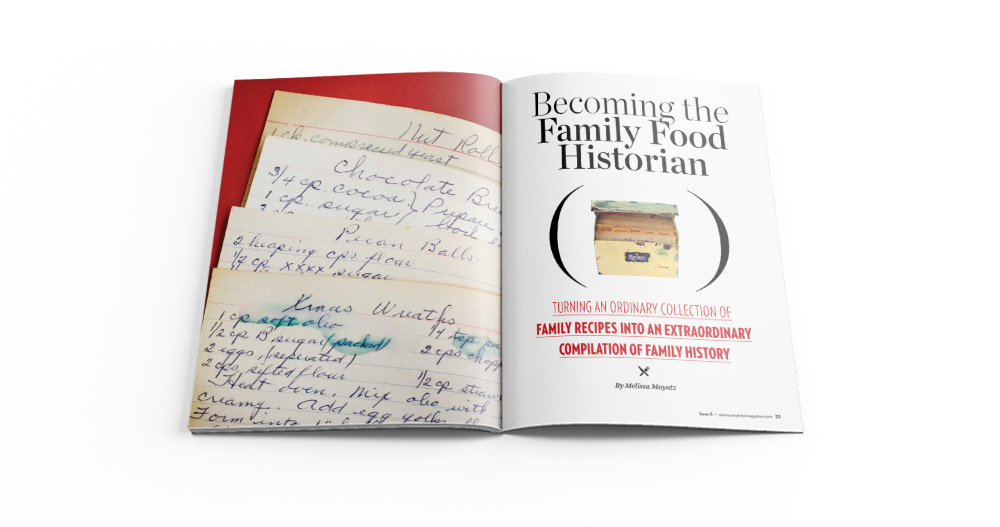 Nut Roll
1 ck. compressed yeast
Chocolate Bre
3/4 cp. cocoa } Prepare
1 cp. sugar
Pecan Balls.
2 heaping cps flour
1/2 cp xxxx sugar
Xmas Wreaths
1 cp soft oleo
1/2 cp B. sugar (packed)
2 eggs, (seperated)
2 cps, sifted flour
1/4 tsp
2 cps chopp
1/2 cp straw
Heat oven. Mix oleo with
creamy. Add egg yolks
Form into
Becoming the
Family Food
Historian
Recipes
TURNING AN ORDINARY COLLECTION OF
FAMILY RECIPES INTO AN EXTRAORDINARY
COMPILATION OF FAMILY HISTORY
By Melissa Mayntz
Issue 6 • americanantiramagazine.com 33